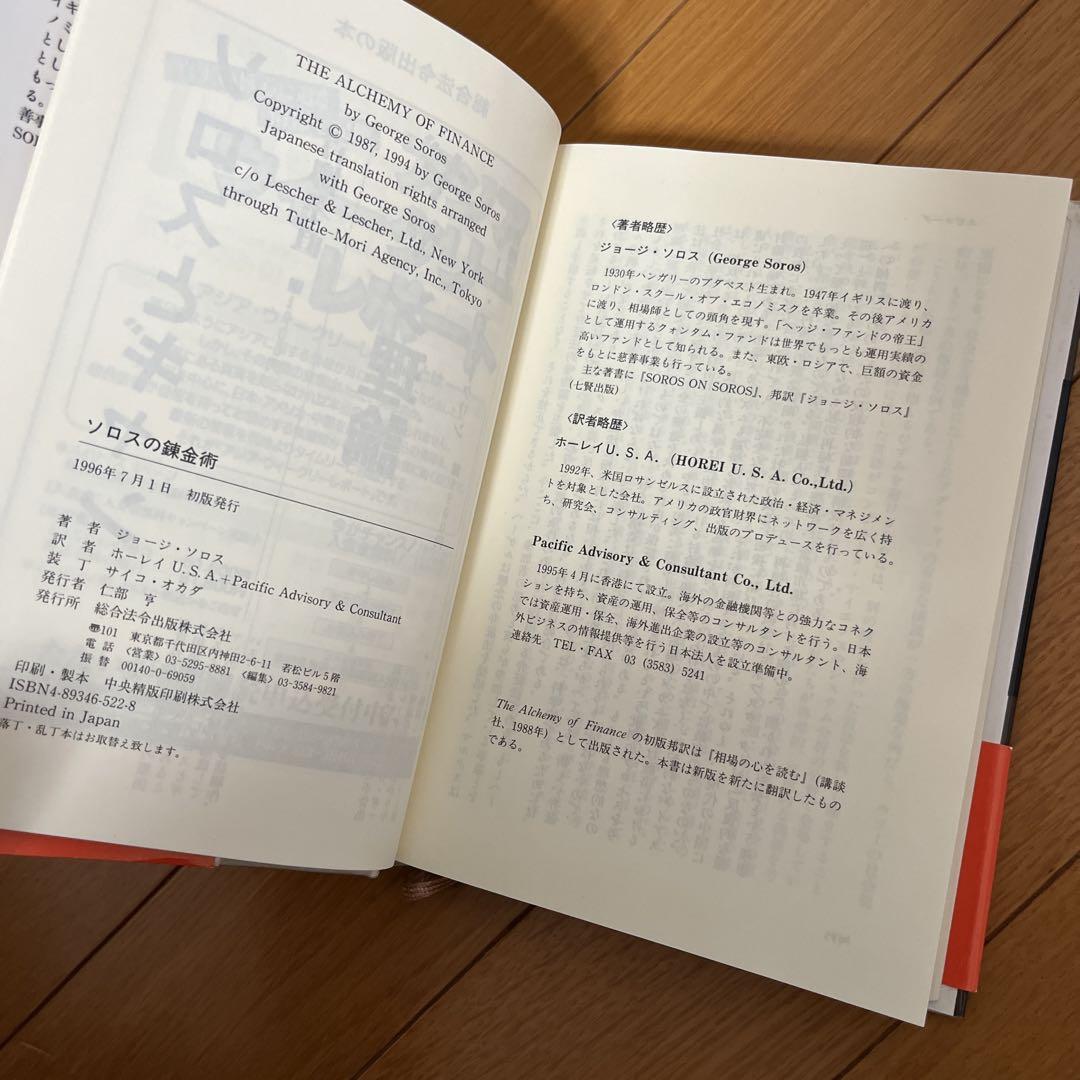 THE ALCHEMY OF FINANCE
by George Soros
Copyright © 1987, 1994 by George Soros
Japanese translation rights arranged
with George Soros
c/o Lescher & Lescher, Ltd., New York
through Tuttle-Mori Agency, Inc., Tokyo
ソロスの錬金術
1996年7月1日 初版発行
著 者 ジョージ・ソロス
訳 者 ホーレイ U.S.A.+Pacific Advisory & Consultant
装 丁 サイコ・オカダ
発行者 仁部 亨
発行所 総合法令出版株式会社
〠101 東京都千代田区内神田2-6-11 若松ビル5階
電 話 〈営業〉03-5295-8881 〈編集〉03-3584-9821
振 替 00140-0-69059
印刷・製本 中央精版印刷株式会社
ISBN4-89346-522-8
Printed in Japan
落丁・乱丁本はお取替え致します。
〈著者略歴〉
ジョージ・ソロス (George Soros)
1930年ハンガリーのブダペスト生まれ。1947年イギリスに渡り、
ロンドン・スクール・オブ・エコノミスクを卒業。その後アメリカ
に渡り、相場師としての頭角を現す。「ヘッジ・ファンドの帝王」
として運用するクォンタム・ファンドは世界でもっとも運用実績の
高いファンドとして知られる。また、東欧・ロシアで、巨額の資金
をもとに慈善事業も行っている。
主な著書に『SOROS ON SOROS』、邦訳『ジョージ・ソロス』
(七賢出版)
〈訳者略歴〉
ホーレイU.S.A. (HOREI U.S.A. Co.,Ltd.)
1992年、米国ロサンゼルスに設立された政治・経済・マネジメン
トを対象とした会社。アメリカの政官財界にネットワークを広く持
ち、研究会、コンサルティング、出版のプロデュースを行っている。
Pacific Advisory & Consultant Co., Ltd.
1995年4月に香港にて設立。海外の金融機関等との強力なコネク
ションを持ち、資産の運用、保全等のコンサルタントを行う。日本
では資産運用・保全、海外進出企業の設立等のコンサルタント、海
外ビジネスの情報提供等を行う日本法人を設立準備中。
連絡先 TEL・FAX 03 (3583) 5241
The Alchemy of Finance の初版邦訳は『相場の心を読む』(講談
社、1988年) として出版された。本書は新版を新たに翻訳したもの
である。